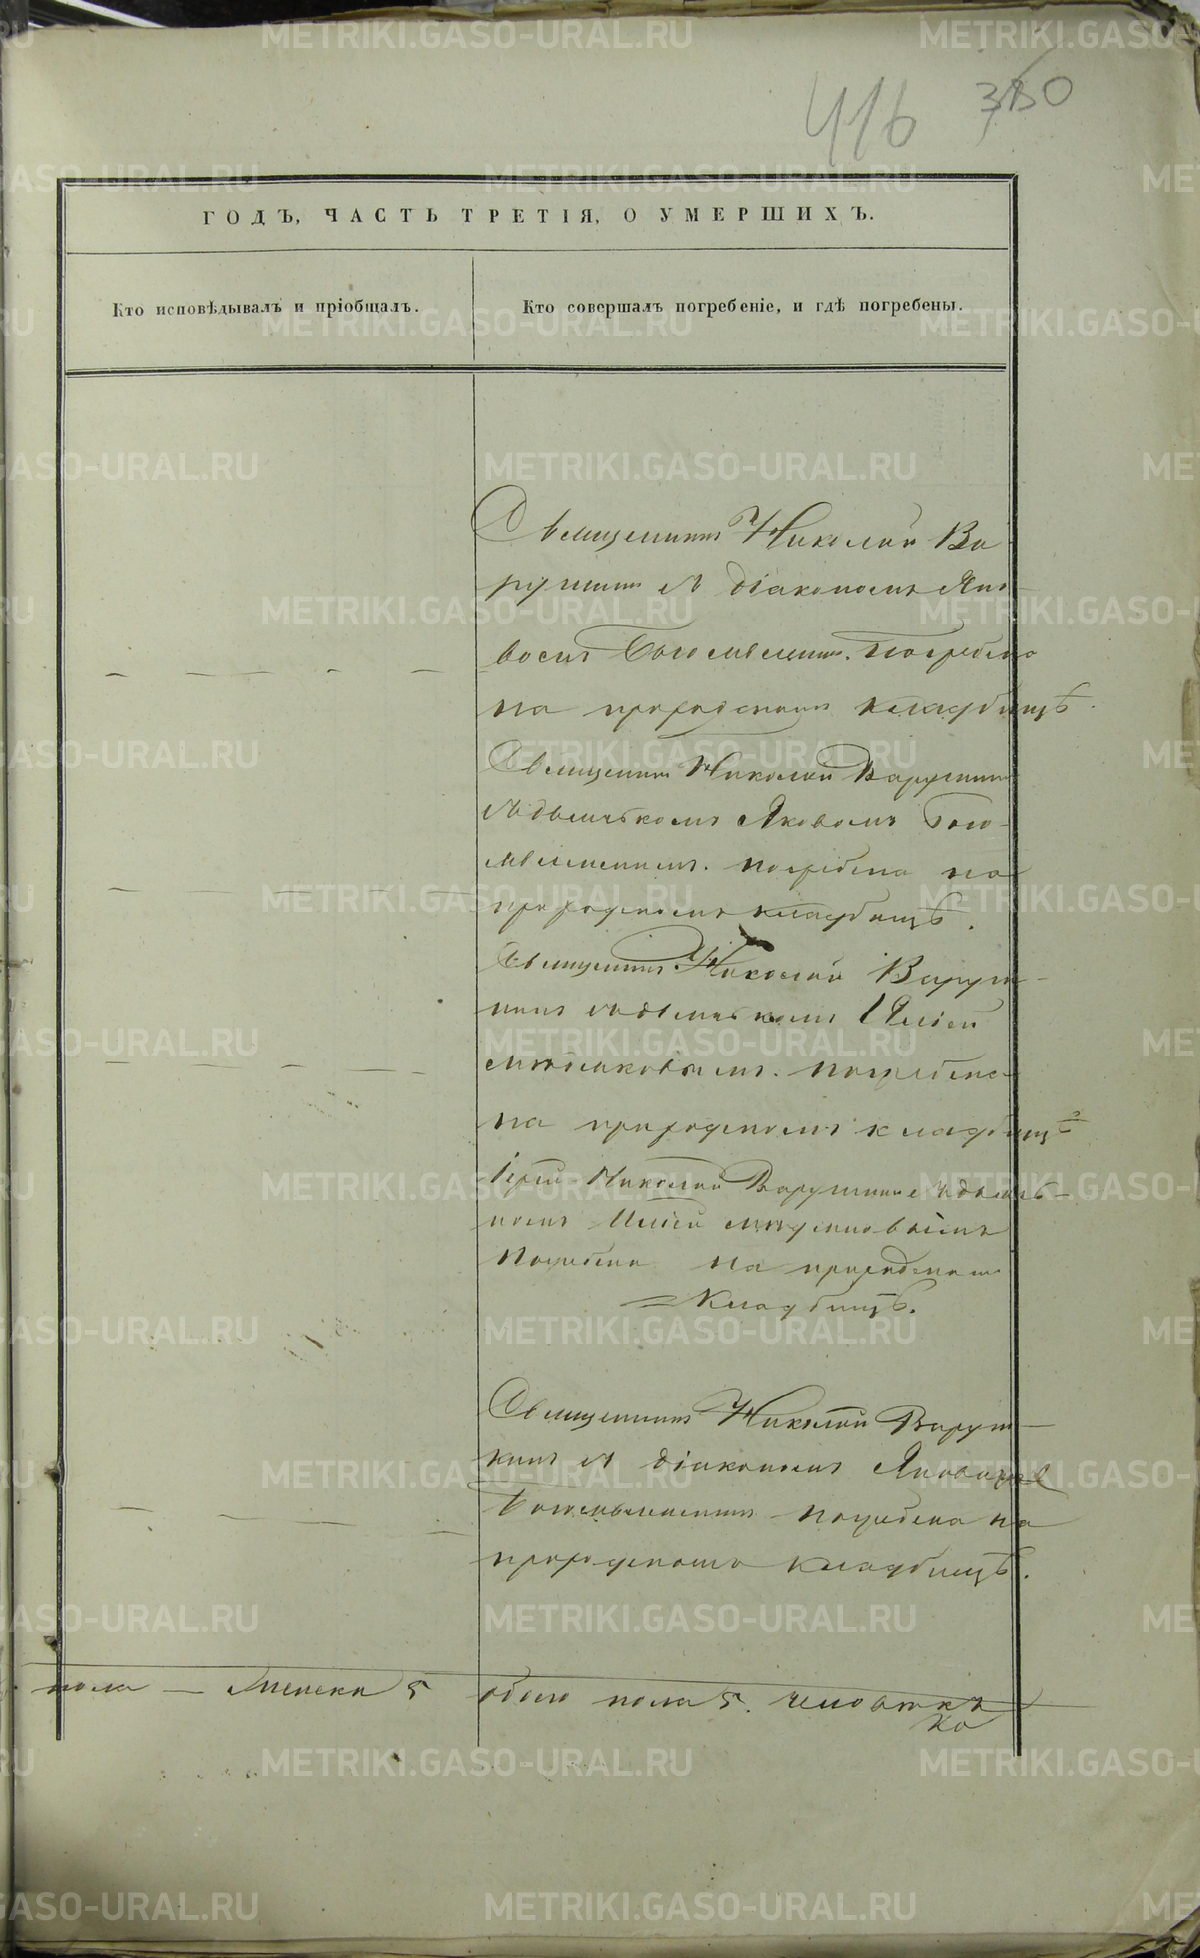 416 380
ГОДЪ, ЧАСТЬ ТРЕТІЯ, О УМЕРШИХЪ.
Кто исповѣдывалъ и пріобщалъ.
Кто совершалъ погребеніе, и гдѣ погребены.
Священникъ Николай Ва
рушкинъ съ діакономъ Яко
вомъ Богоявленск. Погребена
на приходскомъ кладбищѣ.
Священник Николай Варушкинъ
съ дьячькомъ Яковомъ Бого-
явленскимъ. погребена на
приходскомъ кладбищѣ.
Священник Николай Варуш-
кинъ съ дьячькомъ
погребена
на приходскомъ кладбищѣ
Іерей Николай Варушкинъ съ дьячь-
комъ
Погребена на приходскомъ
= кладбищѣ.
Священникъ Николай Варуш-
кинъ съ діакономъ Яковомъ
Богоявленскимъ погребена на
приходскомъ кладбищѣ.
пола — женска 5 обоего пола 5. человѣкъ
METRIKI.GASO-URAL.RU